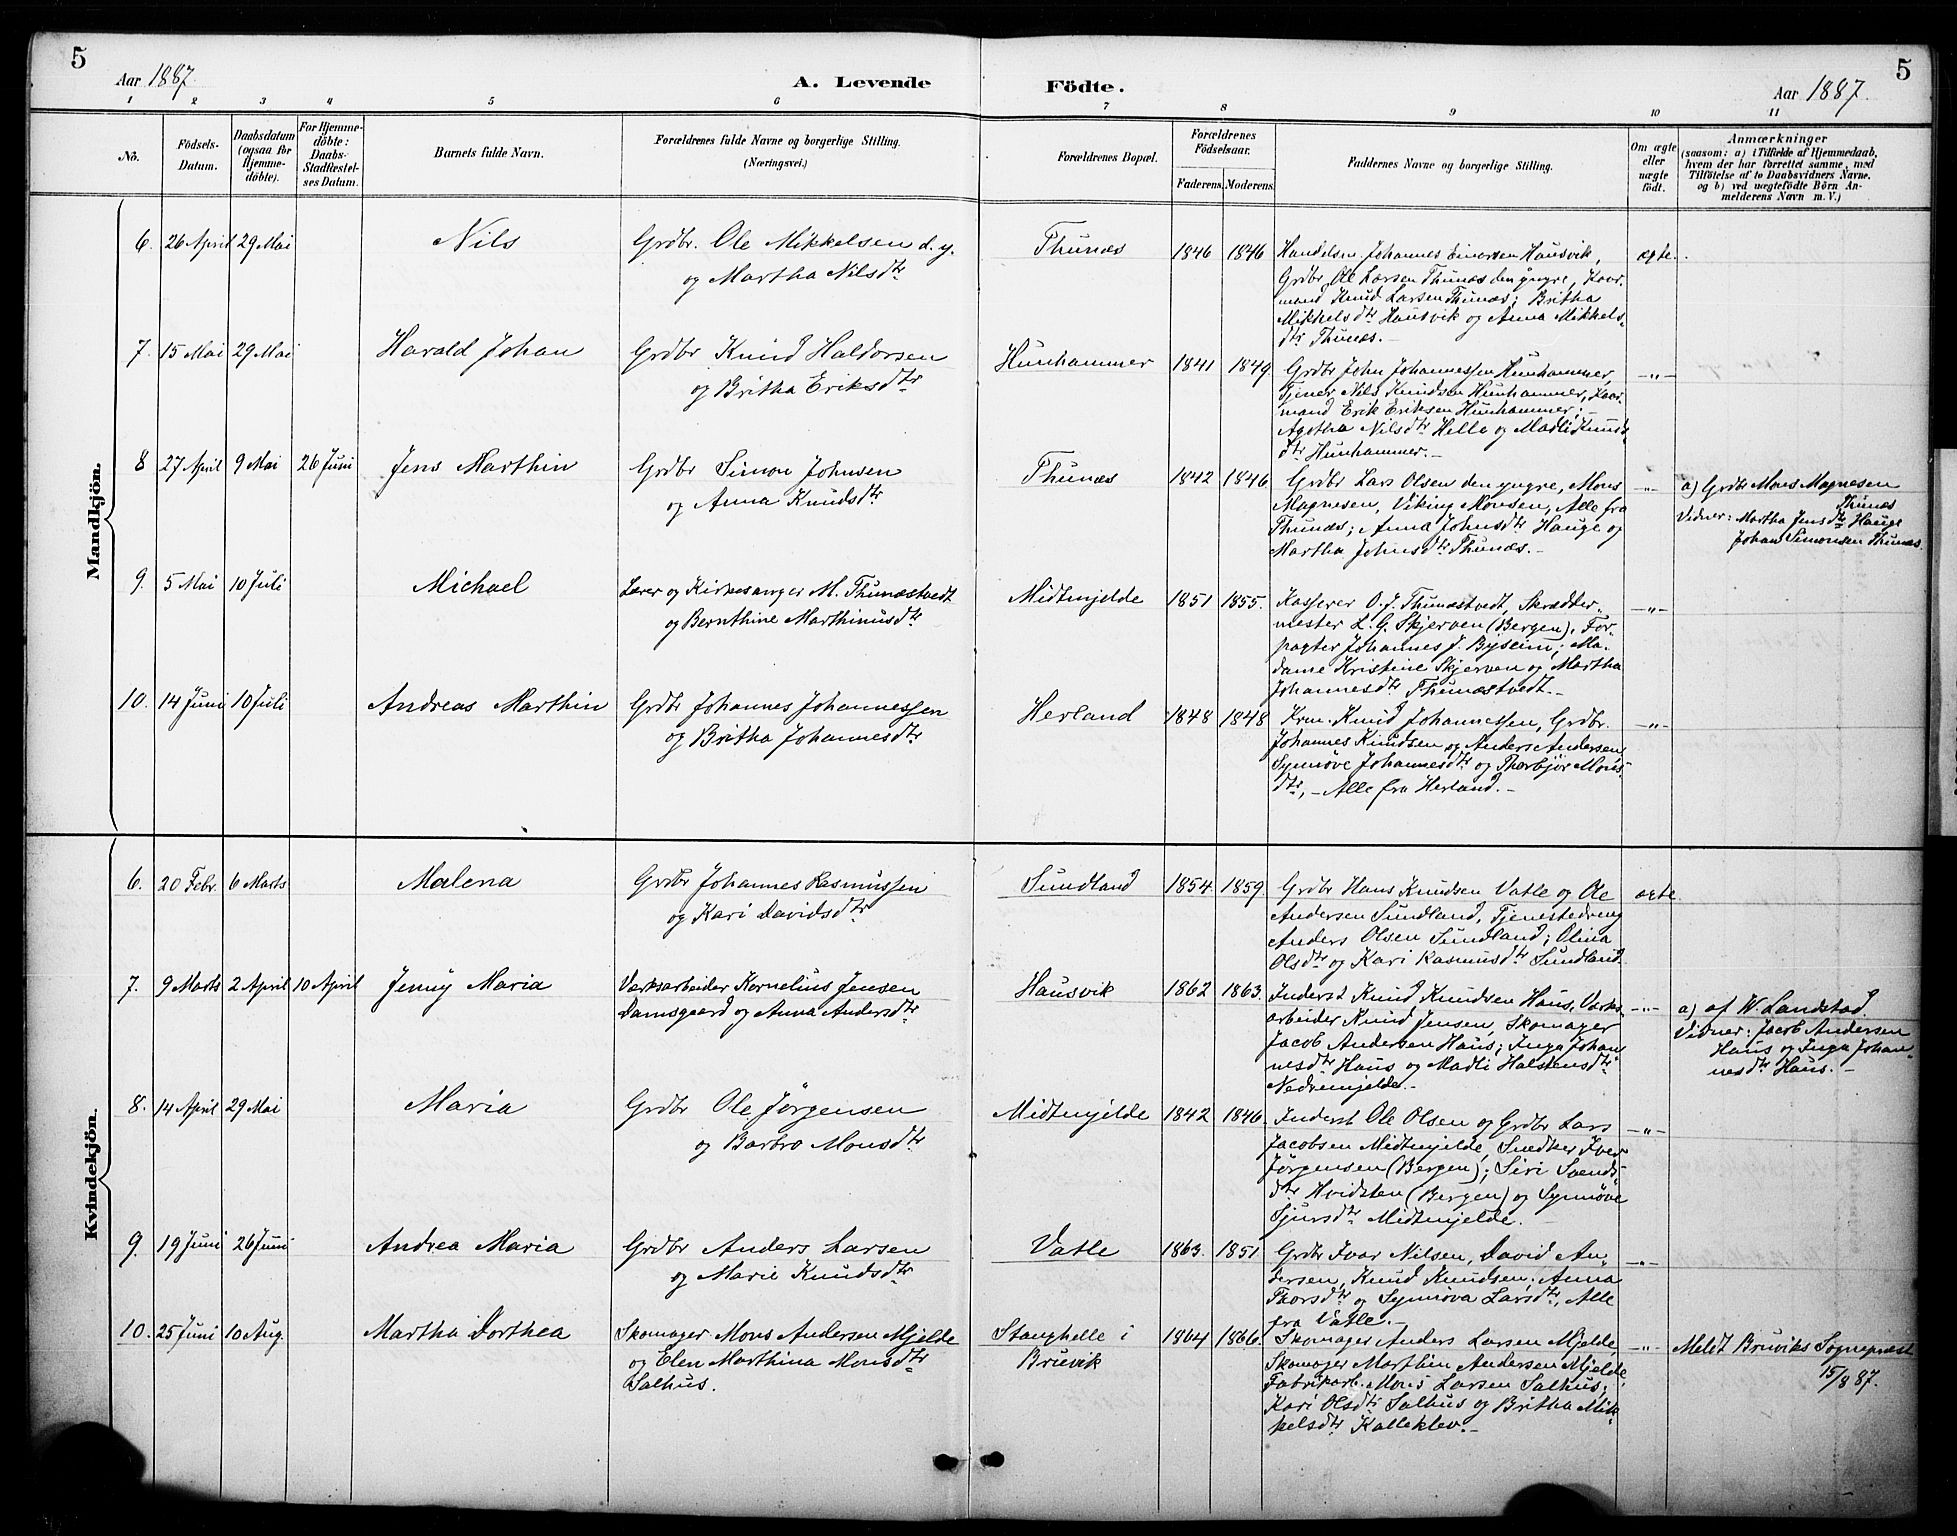 5
Aar 1887.
A. Levende
Födte.
Aar 1887.
5
1 2 3 4 5 6 7 8 9 10 11
No.
Födsels-
Datum.
Daabsdatum
(ogsaa for
Hjemme-
döbte).
For Hjemme-
döbte:
Daabs-
Stadfæstel-
ses Datum.
Barnets fulde Navn.
Forældrenes fulde Navne og borgerlige Stilling.
(Næringsvei.)
Forældrenes Bopæl.
Forældrenes
Födselsaar.
Faderens. Moderens.
Faddernes Navne og borgerlige Stilling.
Om ægte
eller
uægte
födt.
Anmærkninger
(saasom: a) i Tilfælde af Hjemmedaab,
hvem der har forrettet samme, med
Tilföielse af to Daabsvidners Navne,
og b) ved uægtefödte Börn An-
melderens Navn m. V.)
Mandkjön.
6. 26 April 29 Mai
Nils
Grdbr. Ole Mikkelsen d. y.
og Martha Nilsdtr
Thunæs
1846 1846
Handelsm. Johannes Einarsen Hausvik,
Grdbr Ole Larsen Thunæs den yngre, Kaar-
mand Knud Larsen Thunæs; Britha
Mikkelsdtr Hausvik og Anna Mikkels-
dtr Thunæs.-
ægte.
7. 15 Mai 29 Mai
Harald Johan
Grdbr Knud Haldorsen
og Britha Eriksdtr
Hunhammer
1841 1849
Grdbr John Johannessen Hunhammer,
Tjener Nils Knudsen Hunhammer, Kaar-
mand Erik Eriksen Hunhammer;-
Agatha Nilsdtr Helle og Madli Knuds-
dtr Hunhammer.-
-"-
8 27 April 9 Mai 26 Juni
Jens Marthin
Grdbr Simon Johnsen
og Anna Knudsdtr
Thunæs
1842 1846
Grdbr Lars Olsen den yngre, Mons
Magnesen, Viking Monsen, Alle fra
Thunæs; Anna Johnsdtr Hauge og
Martha Johnsdtr Thunæs.-
-"-
a) Grdbr Mons Magnesen
Thunæs
Vidner: Martha Jensdtr Hauge
Johan Simonsen Thunæs.
9. 5 Mai 10 Juli
Michael
Lærer og Kirkesanger M. Thunæstvedt
og Bernthine Marthinusdtr
Midtmjelde
1851 1855.
Kasserer O. J. Thunæstvedt, Skrædter-
mester L. G. Skjerven (Bergen), For-
pagter Johannes J. Byseim; Ma-
dame Kristine Skjerven og Martha
Johannesdtr Thunæstvedt.-
-"-
10. 14 Juni 10 Juli
Andreas Marthin
Grdbr Johannes Johannessen
og Britha Johannesdtr
Herland
1848 1848
Krm. Knud Johannessen, Grdbr.
Johannes Knudsen og Anders Andersen
Synnöve Johannesdtr og Thorbjör Mons-
dtr, - Alle fra Herland.-
-"-
Kvindekjön.
6. 20 Febr. 6 Marts
Malena
Grdbr Johannes Rasmussen
og Kari Davidsdtr
Sundland
1854 1859.
Grdbr Hans Knudsen Vatle og Ole
Andersen Sundland, Tjenestedreng
Anders Olsen Sundland; Olina
Olsdtr og Kari Rasmusdtr Sundland.
ægte.
7. 9 Marts 2 April 10 April
Jenny Maria
Værksarbeider Kornelius Jensen
Damsgaard og Anna Andersdtr
Hausvik
1862 1863.
Inderst Knud Knudsen Haus, Værks-
arbeider Knud Jensen, Skomager
Jacob Andersen Haus; Inga Johan-
nesdtr Haus og Madli Halstensdtr
Nedremjelde.-
-"-
a) af W. Landstad.
Vidner: Jacob Andersen
Haus og Inga Johan-
nesdtr Haus.-
8. 14 April 29 Mai
Maria
Grdbr Ole Jörgensen
og Barbro Monsdtr
Midtmjelde
1842 1846.
Inderst Ole Olsen og Grdbr Lars
Jacobsen Midtmjelde, Snedker Iver
Jörgensen (Bergen); Siri Svends-
dtr Hvidsten (Bergen) og Synnöve
Sjursdtr Midtmjelde.
-"-
9. 19 Juni 26 Juni
Andrea Maria
Grdbr Anders Larsen
og Marie Knudsdtr
Vatle
1863. 1851.
Grdbr Ivar Nilsen, David An-
dersen, Knud Knudsen; Anna
Thorsdtr og Synnöva Larsdtr, Alle
fra Vatle.-
-"-
10. 25 Juni 10 Aug.
Martha Dorthea
Skomager Mons Andersen Mjelde
og Elen Marthina Monsdtr
Salhus.
Stanghelle i
Bruvik
1864 1866.
Skomager Anders Larsen Mjelde,
Skomager Marthin Andersen Mjelde,
Fabrikarb. Mons Larsen Salhus;
Kari Olsdtr Salhus og Britha Mik-
kelsdtr Kalleklev.-
-"-
Meldt Bruviks Sognepræst
15/8 87.